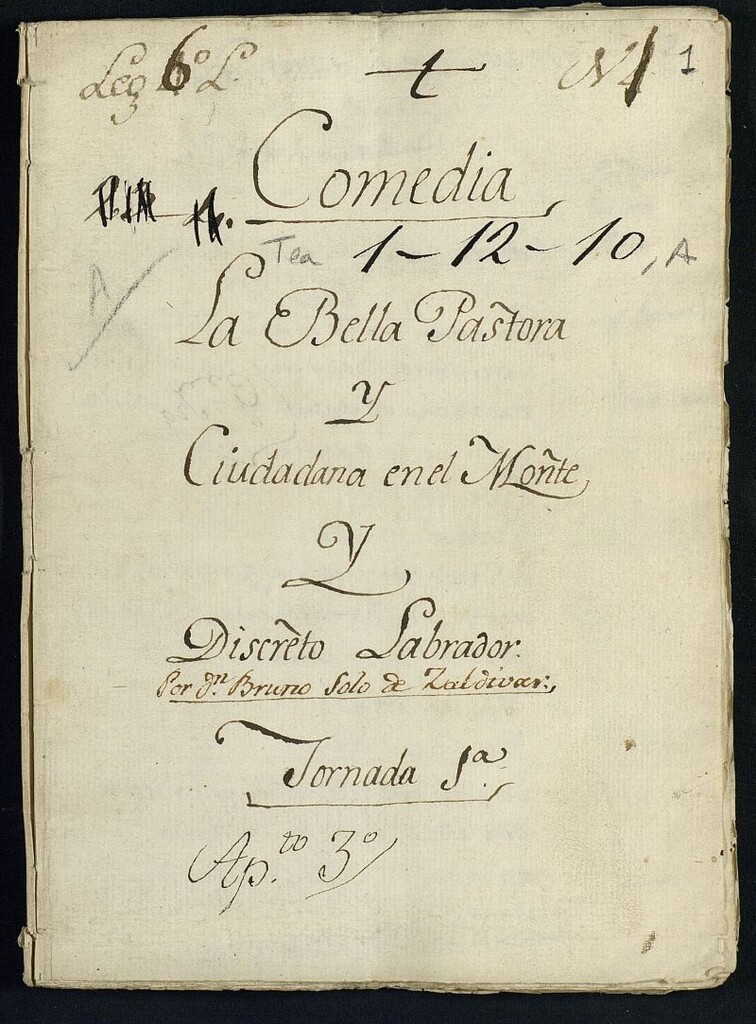 Leg 6º L
+
N 1
1
Comedia,
Tea 1-12-10, A
A
La Bella Pastora
Y
Ciudadana en el Monte,
Y
Discreto Labrador.
Por Dn. Bruno Solo de Zaldivar.,
Jornada 1ª.
Ap.to 3º